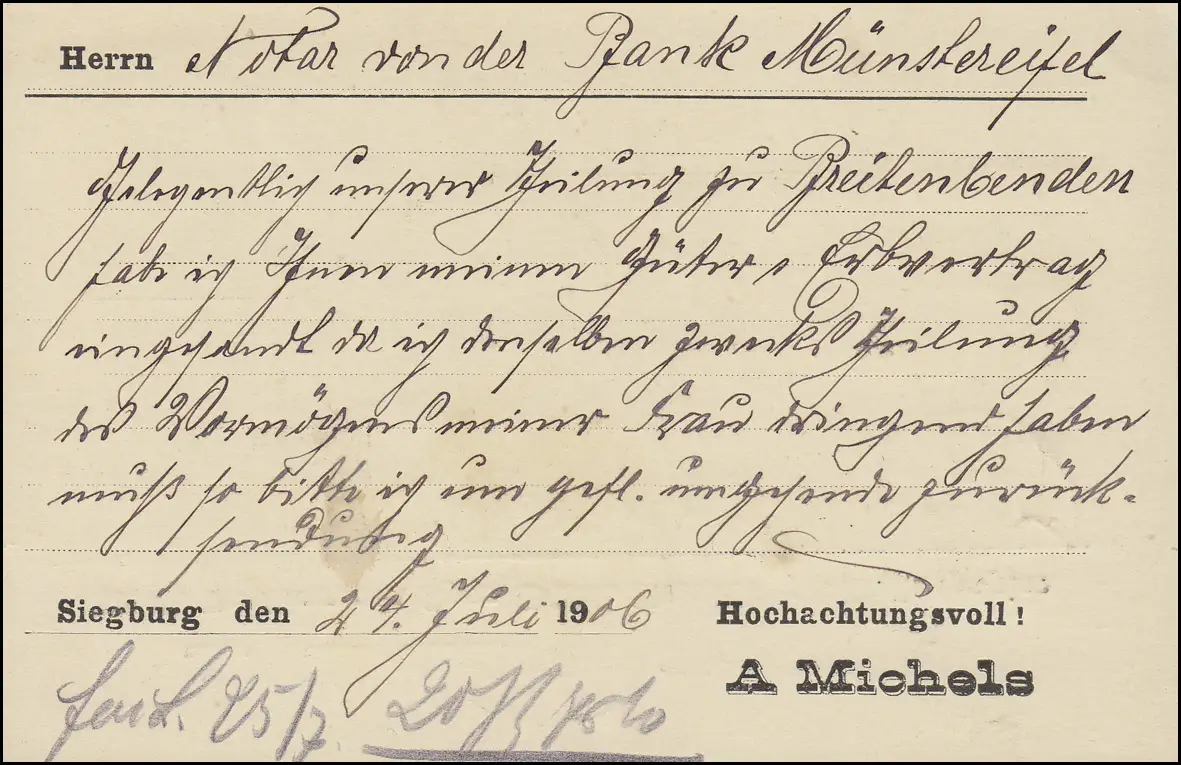 Herrn Notar von der Bank Münstereifel
Gelegentlich unserer Theilung zu Breitenbenden
habe ich Ihnen meinen Güter u Erbvertrag
eingesandt da ich denselben zwecks Theilung
des Vermögens meiner Frau dringend haben
muß so bitte ich um gefl. umgehende zurück-
sendung
Siegburg den 24. Juli 1906 Hochachtungsvoll!
A Michels
25/7. 20 Porto